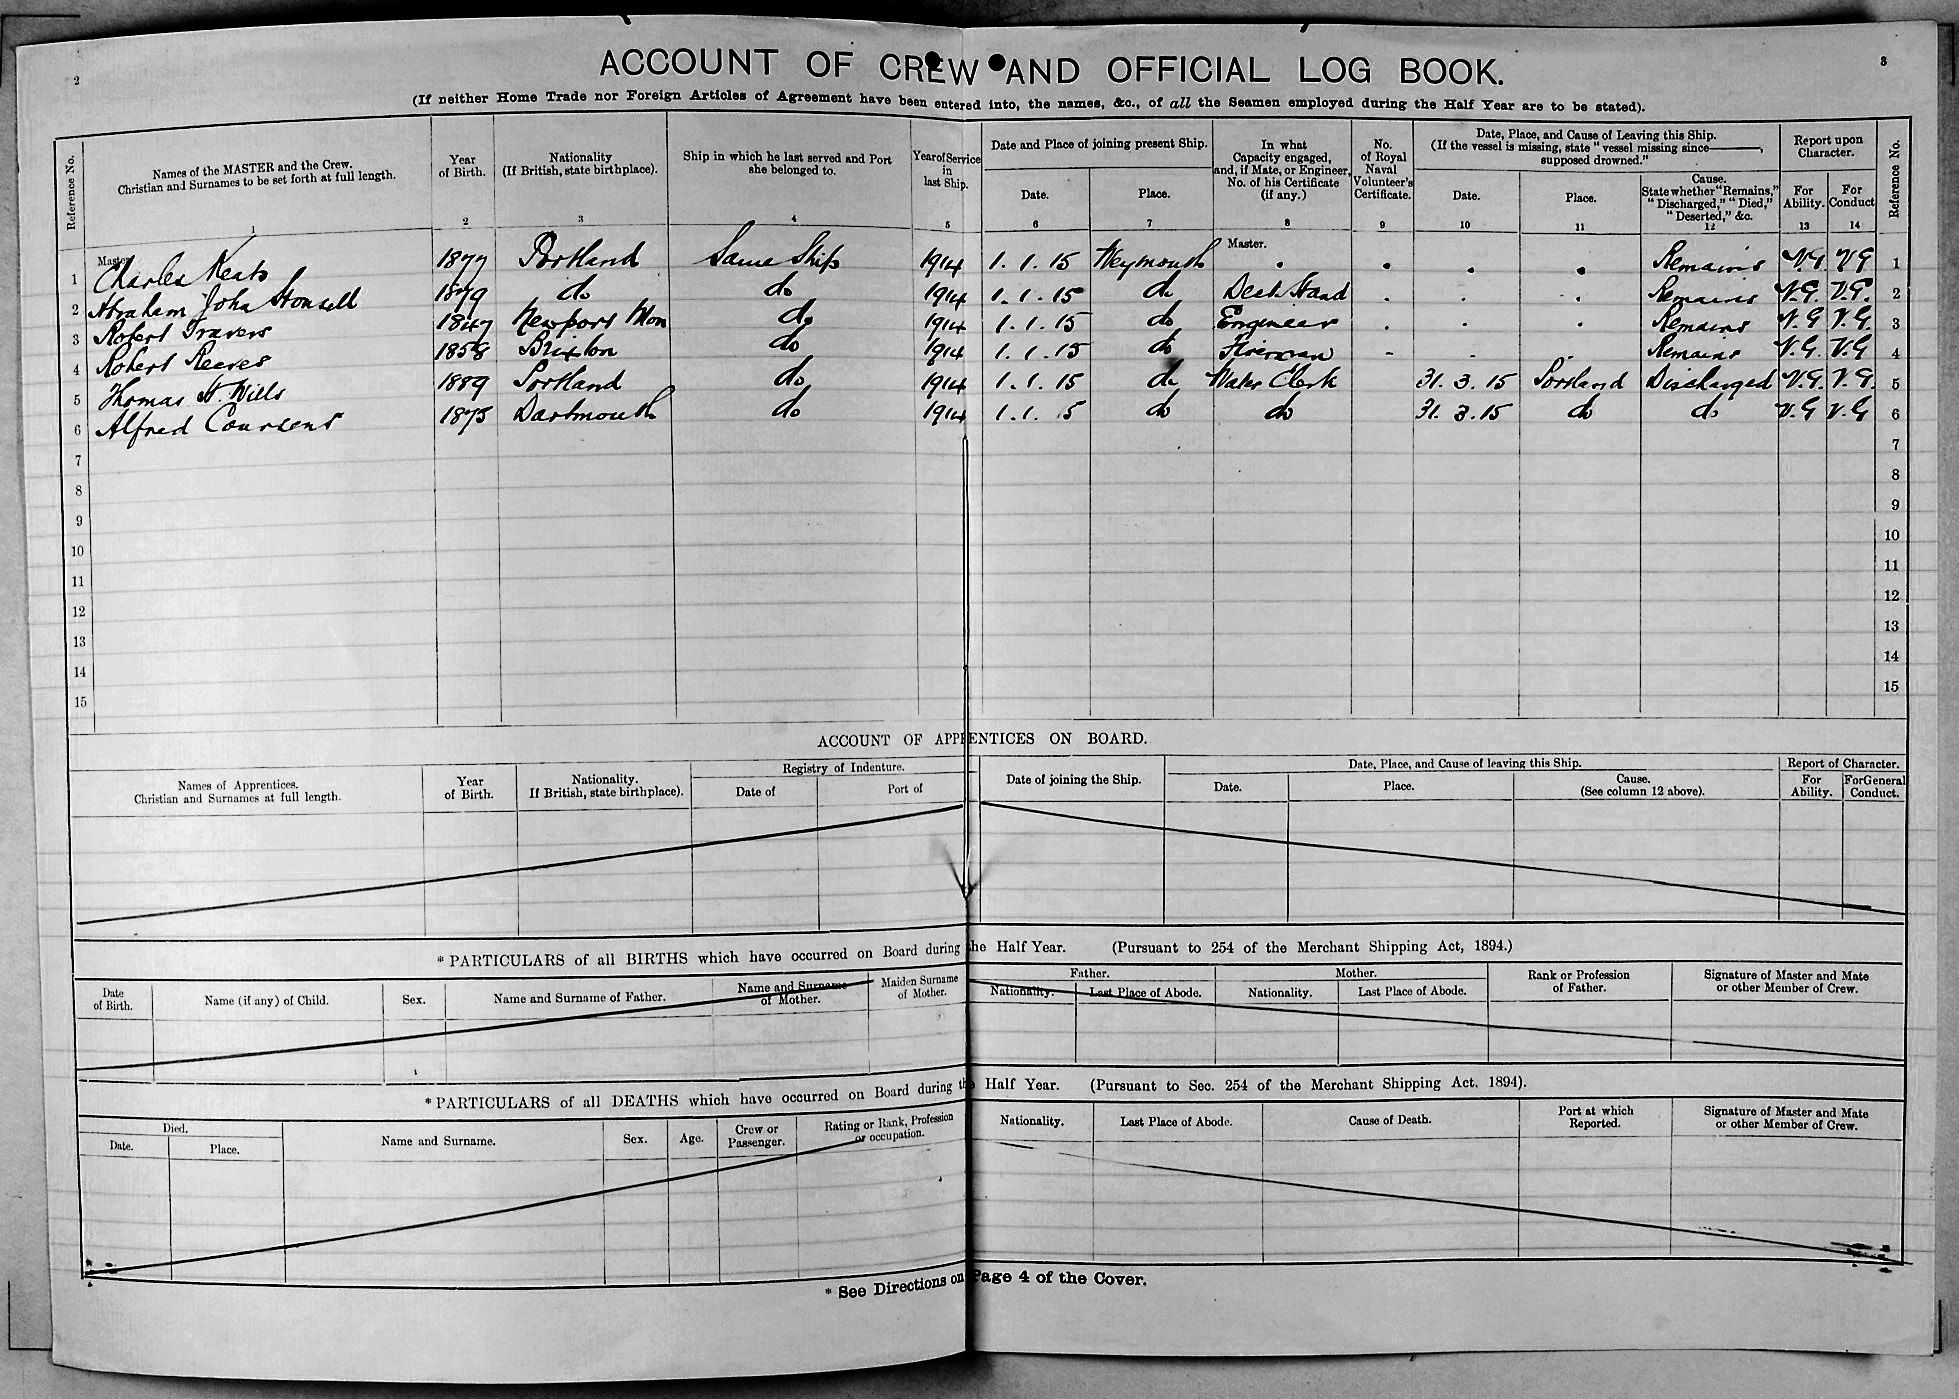 2
3
ACCOUNT OF CREW AND OFFICIAL LOG BOOK.
(If neither Home Trade nor Foreign Articles of Agreement have been entered into, the names, &c., of all the Seamen employed during the Half Year are to be stated).
Reference No.
Names of the MASTER and the Crew.
Christian and Surnames to be set forth at full length.
1
Year
of Birth.
2
Nationality
(If British, state birthplace).
3
Ship in which he last served and Port
she belonged to.
4
Year of Service
in
last Ship.
5
Date and Place of joining present Ship.
Date.
6
Place.
7
In what
Capacity engaged,
and, if Mate, or Engineer,
No. of his Certificate
(if any.)
8
No.
of Royal
Naval
Volunteer's
Certificate.
9
Date, Place, and Cause of Leaving this Ship.
(If the vessel is missing, state "vessel missing since———,
supposed drowned."
Date.
10
Place.
11
Cause.
State whether "Remains,"
"Discharged," "Died,"
"Deserted," &c.
12
Report upon
Character.
For
Ability.
13
For
Conduct
14
Reference No.
1 Master Charles Keats 1877 Portland Same Ship 1914 1.1.15 Weymouth Master. Remains V.G. V.G 1
2 Abraham John 1879 do do 1914 1.1.15 do Deck Hand Remains V.G. V.G. 2
3 Robert Travers 1847 Newport Mon do 1914 1.1.15 do Engineer Remains V.G V.G. 3
4 Robert Reeves 1858 Brixton do 1914 1.1.15 do Fireman Remains V.G. V.G 4
5 Thomas Wills 1889 Portland do 1914 1.1.15 do Clerk 31.3.15 Portland Discharged V.G. V.G. 5
6 Alfred 1875 Dartmouth do 1914 1.1.15 do do 31.3.15 do do V.G V.G 6
7 7
8 8
9 9
10 10
11 11
12 12
13 13
14 14
15 15
ACCOUNT OF APPRENTICES ON BOARD.
Names of Apprentices.
Christian and Surnames at full length.
Year
of Birth.
Nationality.
If British, state birthplace).
Registry of Indenture.
Date of
Port of
Date of joining the Ship.
Date, Place, and Cause of leaving this Ship.
Date.
Place.
Cause.
(See column 12 above).
Report of Character.
For
Ability.
For General
Conduct.
* PARTICULARS of all BIRTHS which have occurred on Board during the Half Year. (Pursuant to 254 of the Merchant Shipping Act, 1894.)
Date
of Birth.
Name (if any) of Child.
Sex.
Name and Surname of Father.
Name and Surname
of Mother.
Maiden Surname
of Mother.
Father.
Nationality.
Last Place of Abode.
Mother.
Nationality.
Last Place of Abode.
Rank or Profession
of Father.
Signature of Master and Mate
or other Member of Crew.
* PARTICULARS of all DEATHS which have occurred on Board during the Half Year. (Pursuant to Sec. 254 of the Merchant Shipping Act, 1894).
Died.
Date.
Place.
Name and Surname.
Sex.
Age.
Crew or
Passenger.
Rating or Rank, Profession
or occupation.
Nationality.
Last Place of Abode.
Cause of Death.
Port at which
Reported.
Signature of Master and Mate
or other Member of Crew.
* See Directions on Page 4 of the Cover.